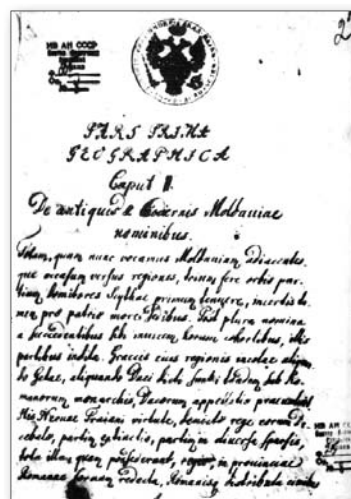 2
ИВ АН СССР
PARS PRIMA
GEOGRAPHICA
Caput I.
De antiquis & hodiernis Moldaviae
nominibus.
Totam, quam nunc vocamus Moldaviam, adiacentes
que occasum versus regiones, trinae fere orbis par
tium domitores Scythae primum tenuere, incertis ta
men pro patrio more sedibus. Post plura nomina
a succedentibus sibi invicem horum cohortibus, istis
partibus indita. Graecis eius regionis incolae aliquan
do Getae, aliquando Daci dicti sunt, sub Ro
manorum monarchis, Dacorum appellatio
His Nervae Traiani virtute, devicto rege eorum De
cebalo, partim extinctis, partim in diversa sparsis,
tota illa, quam possederant, regio, in provinciae
Romanae formam redacta, Romanisq distributa civibus
ИВ АН СССР